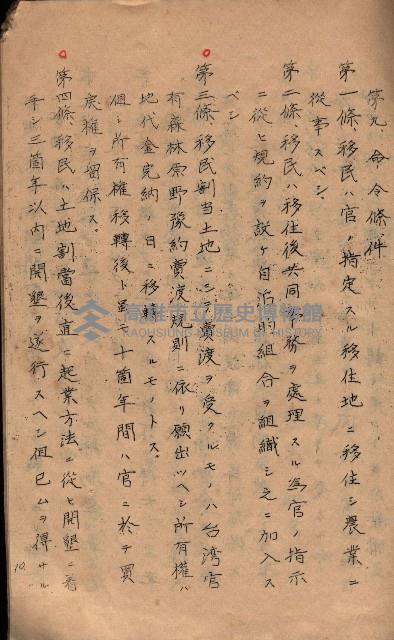 第九、命令條件
第一條、移民ハ官ノ指定スル移住地ニ移住シ農業ニ
從事スベシ。
第二條、移民ハ移住後共同事務ヲ處理スル為官ノ指示
ニ從ヒ規約ヲ設ケ自治的組合ヲ組織シ之ニ加入ス
ベシ
第三條、移民割当土地ニシテ賣渡ヲ受クルモノハ台湾官
有森林原野豫約賣渡規則ニ依リ願出ツベシ所有權ハ
地代金完納ノ日ニ移轉スルモノトス。
但シ所有權移轉後ト雖モ十箇年間ハ官ニ於テ買
戻權ヲ留保ス。
第四條、移民ハ土地割當後直ニ起業方法ニ從ヒ開墾ニ着
手シ三箇年以内ニ開墾ヲ遂行スベシ但已ムヲ得サル
10.
高雄市立歷史博物館
KAOHSIUNG MUSEUM OF HISTORY